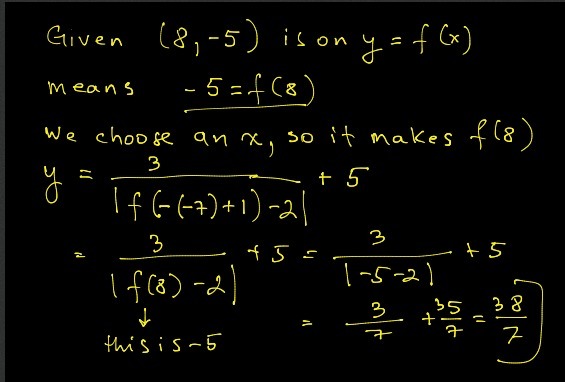 Given (8, -5) is on y = f(x)
means -5 = f(8)
We choose an x, so it makes f(8)
y = 3/|f(-(-7)+1)-2| + 5
= 3/|f(8)-2| + 5 = 3/|-5-2| + 5
↓
this is -5
= 3/7 + 35/7 = 38/7